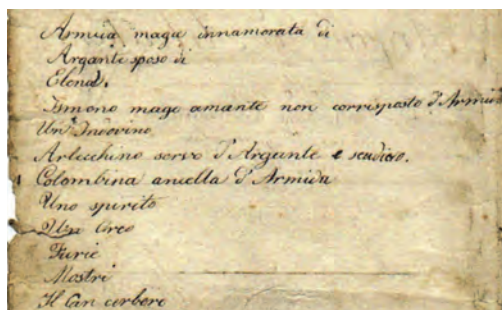 Armida maga innamorata di
Argante sposo di
Elena.
Ismeno mago amante non corrisposto d'Armida
Un Indovino
Arlecchino servo d'Argante e scudiero.
Colombina ancella d'Armida
Uno spirito
Un Orco
Furie
Mostri
Il Can cerbero